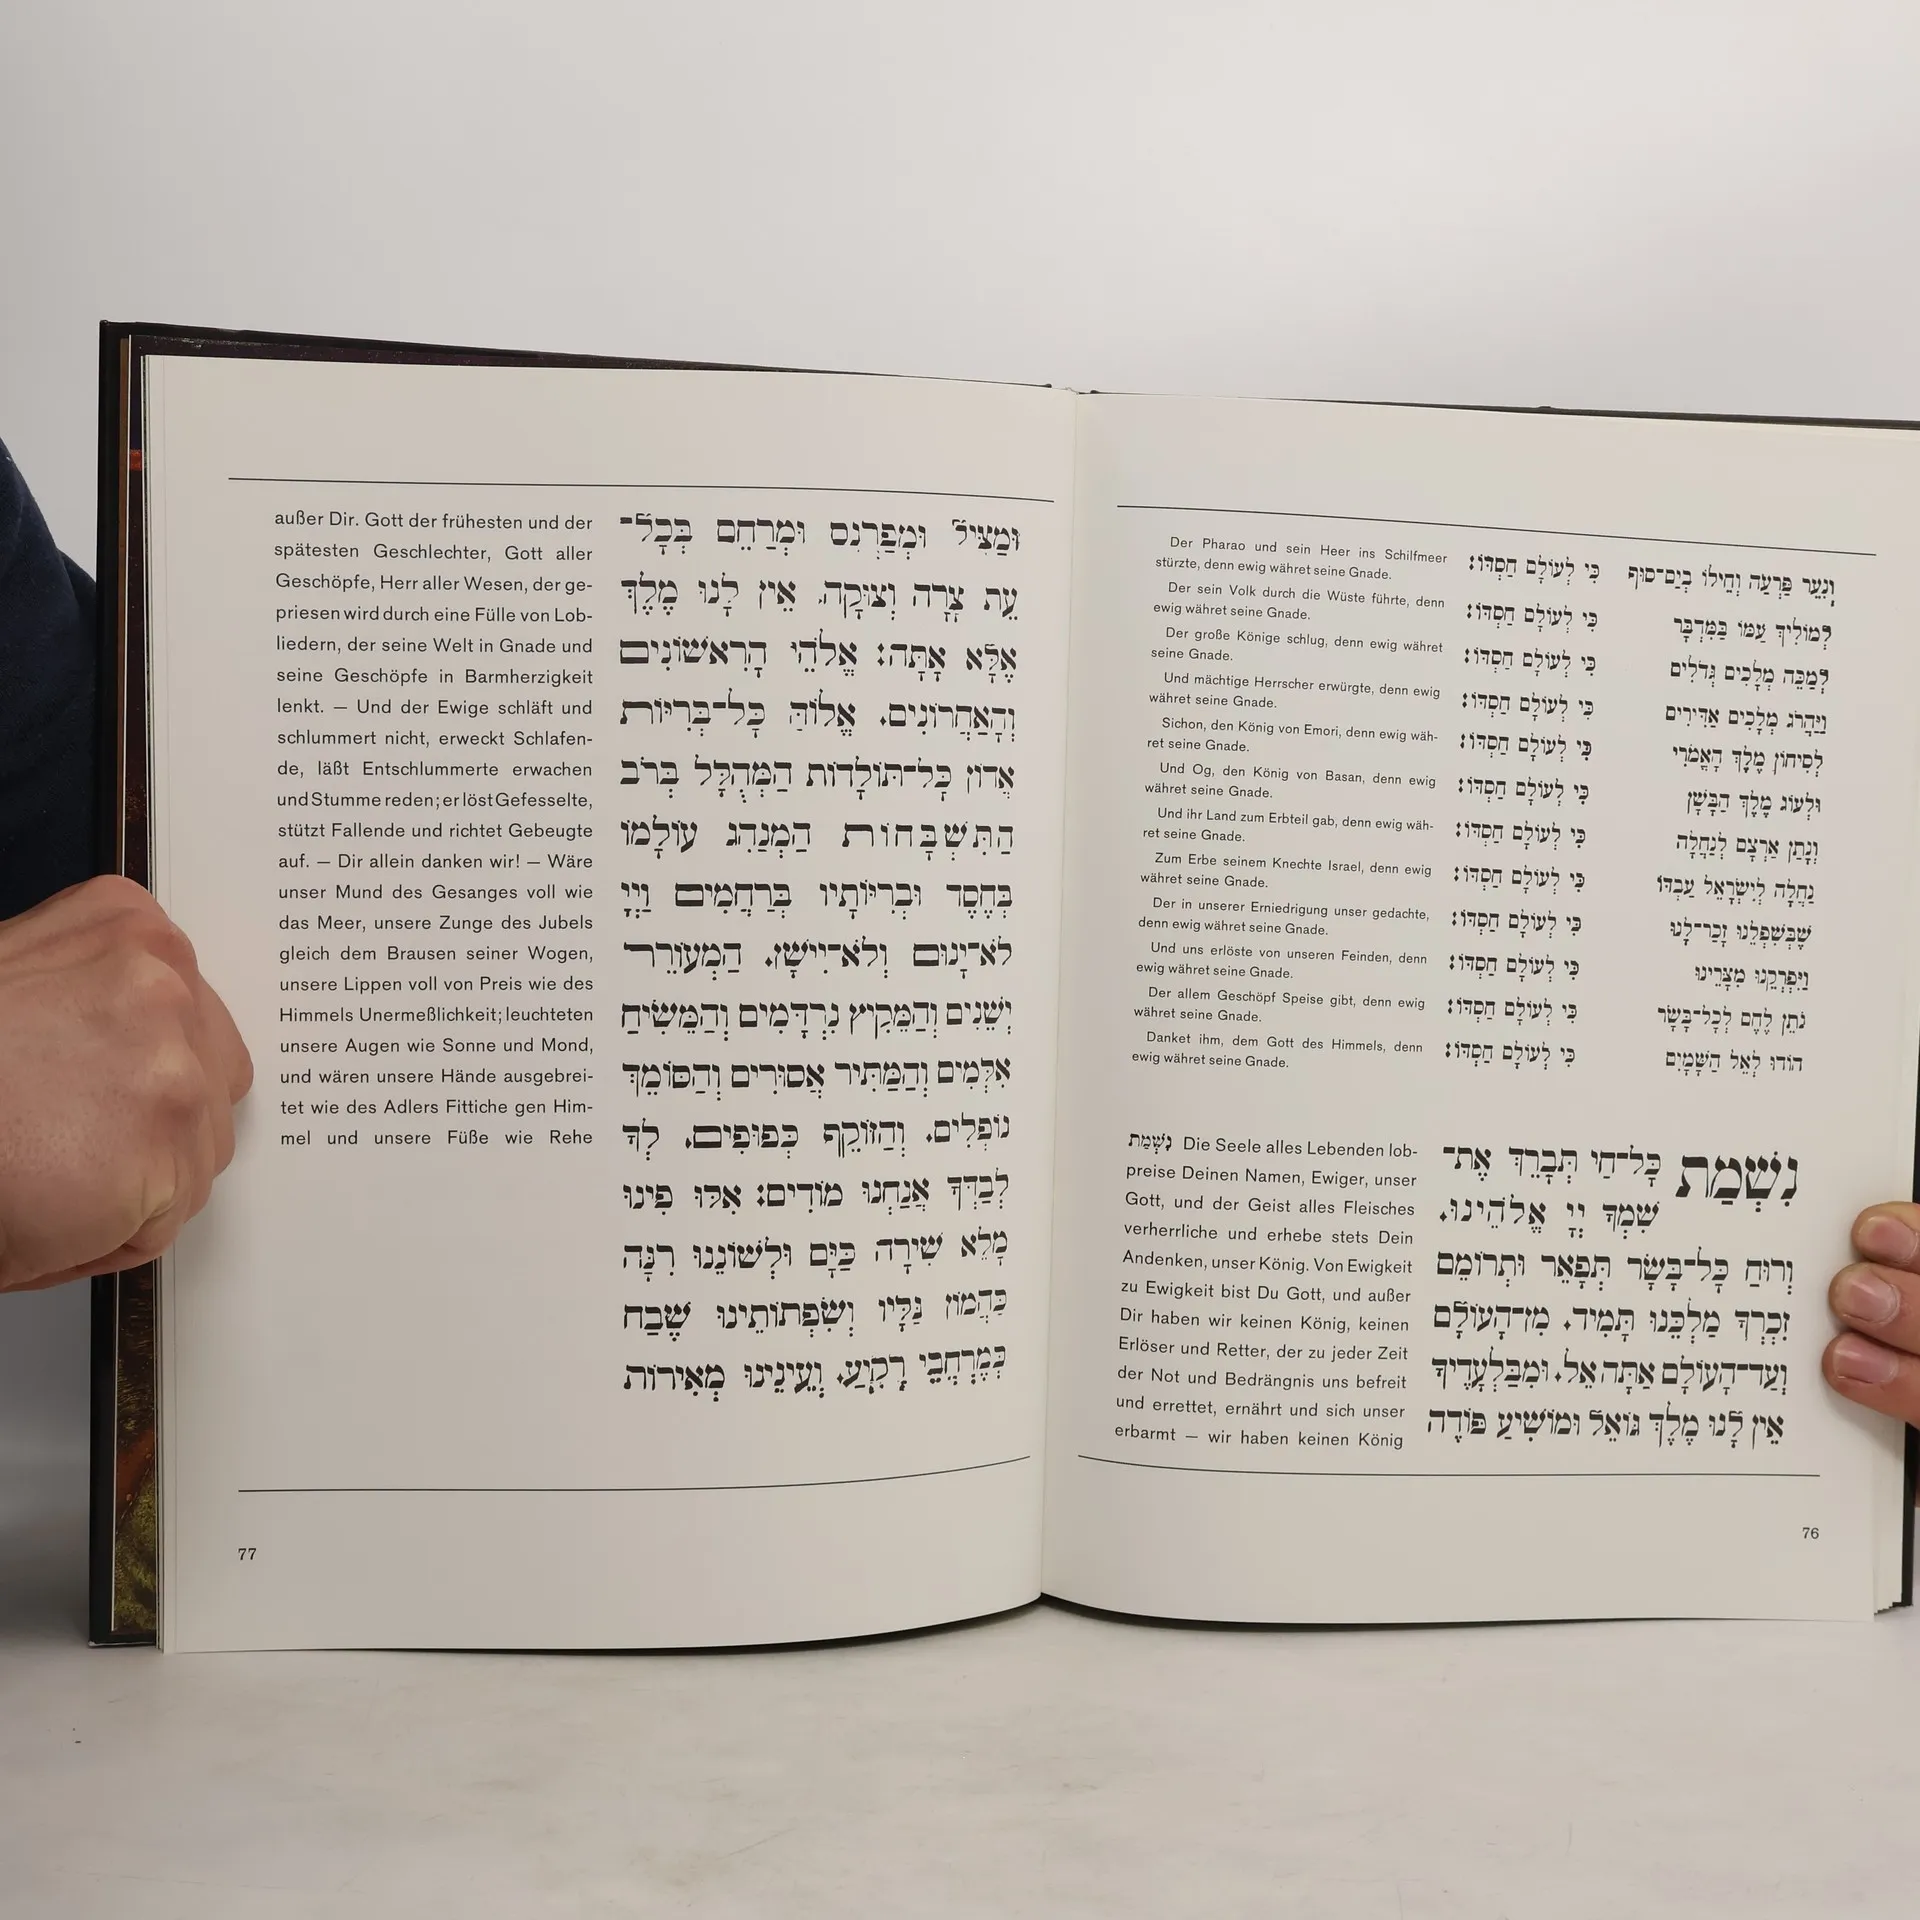 וְנִעֵר פַּרְעֹה וְחֵילוֹ בְיַם־סוּף כִּי לְעוֹלָם חַסְדּוֹ:
לְמוֹלִיךְ עַמּוֹ בַּמִּדְבָּר כִּי לְעוֹלָם חַסְדּוֹ:
לְמַכֵּה מְלָכִים גְּדֹלִים כִּי לְעוֹלָם חַסְדּוֹ:
וַיַּהֲרֹג מְלָכִים אַדִּירִים כִּי לְעוֹלָם חַסְדּוֹ:
לְסִיחוֹן מֶלֶךְ הָאֱמֹרִי כִּי לְעוֹלָם חַסְדּוֹ:
וּלְעוֹג מֶלֶךְ הַבָּשָׁן כִּי לְעוֹלָם חַסְדּוֹ:
וְנָתַן אַרְצָם לְנַחֲלָה כִּי לְעוֹלָם חַסְדּוֹ:
נַחֲלָה לְיִשְׂרָאֵל עַבְדּוֹ כִּי לְעוֹלָם חַסְדּוֹ:
שֶׁבְּשִׁפְלֵנוּ זָכַר־לָנוּ כִּי לְעוֹלָם חַסְדּוֹ:
וַיִּפְרְקֵנוּ מִצָּרֵינוּ כִּי לְעוֹלָם חַסְדּוֹ:
נֹתֵן לֶחֶם לְכָל־בָּשָׂר כִּי לְעוֹלָם חַסְדּוֹ:
הוֹדוּ לְאֵל הַשָּׁמָיִם כִּי לְעוֹלָם חַסְדּוֹ:
Der Pharao und sein Heer ins Schilfmeer
stürzte, denn ewig währet seine Gnade.
Der sein Volk durch die Wüste führte, denn
ewig währet seine Gnade.
Der große Könige schlug, denn ewig währet
seine Gnade.
Und mächtige Herrscher erwürgte, denn ewig
währet seine Gnade.
Sichon, den König von Emori, denn ewig wäh-
ret seine Gnade.
Und Og, den König von Basan, denn ewig
währet seine Gnade.
Und ihr Land zum Erbteil gab, denn ewig wäh-
ret seine Gnade.
Zum Erbe seinem Knechte Israel, denn ewig
währet seine Gnade.
Der in unserer Erniedrigung unser gedachte,
denn ewig währet seine Gnade.
Und uns erlöste von unseren Feinden, denn
ewig währet seine Gnade.
Der allem Geschöpf Speise gibt, denn ewig
währet seine Gnade.
Danket ihm, dem Gott des Himmels, denn
ewig währet seine Gnade.
נִשְׁמַת כָּל־חַי תְּבָרֵךְ אֶת־
שִׁמְךָ יְיָ אֱלֹהֵינוּ.
וְרוּחַ כָּל־בָּשָׂר תְּפָאֵר וּתְרוֹמֵם
זִכְרְךָ מַלְכֵּנוּ תָּמִיד. מִן־הָעוֹלָם
וְעַד־הָעוֹלָם אַתָּה אֵל. וּמִבַּלְעָדֶיךָ
אֵין לָנוּ מֶלֶךְ גּוֹאֵל וּמוֹשִׁיעַ פּוֹדֶה
נִשְׁמַת Die Seele alles Lebenden lob-
preise Deinen Namen, Ewiger, unser
Gott, und der Geist alles Fleisches
verherrliche und erhebe stets Dein
Andenken, unser König. Von Ewigkeit
zu Ewigkeit bist Du Gott, und außer
Dir haben wir keinen König, keinen
Erlöser und Retter, der zu jeder Zeit
der Not und Bedrängnis uns befreit
und errettet, ernährt und sich unser
erbarmt — wir haben keinen König
76
וּמַצִּיל וּמְפַרְנֵס וּמְרַחֵם בְּכָל־
עֵת צָרָה וְצוּקָה. אֵין לָנוּ מֶלֶךְ
אֶלָּא אָתָּה: אֱלֹהֵי הָרִאשׁוֹנִים
וְהָאַחֲרוֹנִים. אֱלוֹהַּ כָּל־בְּרִיּוֹת
אֲדוֹן כָּל־תּוֹלָדוֹת הַמְּהֻלָּל בְּרֹב
הַתִּשְׁבָּחוֹת הַמְנַהֵג עוֹלָמוֹ
בְּחֶסֶד וּבְרִיּוֹתָיו בְּרַחֲמִים וַיְיָ
לֹא־יָנוּם וְלֹא־יִישָׁן. הַמְעוֹרֵר
יְשֵׁנִים וְהַמֵּקִיץ נִרְדָּמִים וְהַמֵּשִׂיחַ
אִלְּמִים וְהַמַּתִּיר אֲסוּרִים וְהַסּוֹמֵךְ
נוֹפְלִים. וְהַזּוֹקֵף כְּפוּפִים. לְךָ
לְבַדְּךָ אֲנַחְנוּ מוֹדִים: אִלּוּ פִינוּ
מָלֵא שִׁירָה כַּיָּם וּלְשׁוֹנֵנוּ רִנָּה
כַּהֲמוֹן גַּלָּיו וְשִׂפְתוֹתֵינוּ שֶׁבַח
כְּמֶרְחֲבֵי רָקִיעַ. וְעֵינֵינוּ מְאִירוֹת
außer Dir. Gott der frühesten und der
spätesten Geschlechter, Gott aller
Geschöpfe, Herr aller Wesen, der ge-
priesen wird durch eine Fülle von Lob-
liedern, der seine Welt in Gnade und
seine Geschöpfe in Barmherzigkeit
lenkt. — Und der Ewige schläft und
schlummert nicht, erweckt Schlafen-
de, läßt Entschlummerte erwachen
und Stumme reden; er löst Gefesselte,
stützt Fallende und richtet Gebeugte
auf. — Dir allein danken wir! — Wäre
unser Mund des Gesanges voll wie
das Meer, unsere Zunge des Jubels
gleich dem Brausen seiner Wogen,
unsere Lippen voll von Preis wie des
Himmels Unermeßlichkeit; leuchteten
unsere Augen wie Sonne und Mond,
und wären unsere Hände ausgebrei-
tet wie des Adlers Fittiche gen Him-
mel und unsere Füße wie Rehe
77